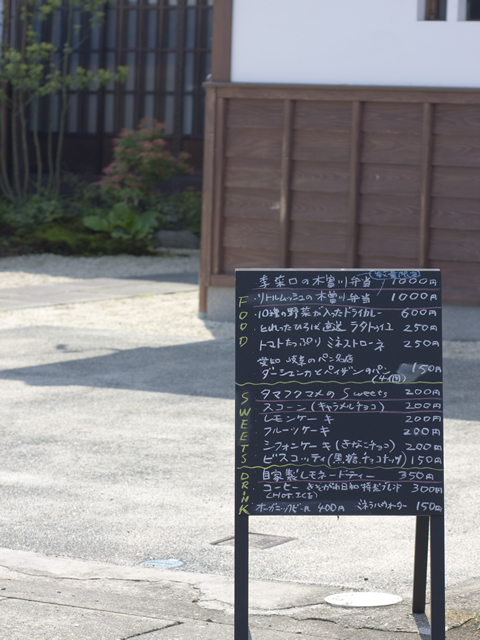 季菜口の木曽川弁当 1000円
FOOD
・リトルムッシュの木曽川弁当 1000円
・10種の野菜が入ったドライカレー 600円
とれったひろば直送 ラタトゥイユ 250円
トマトたっぷり ミネストローネ 250円
愛知 岐阜のパン
ダーシェンカとペイザンのパン 150円
SWEETS
タマフクマメのSweets 200円
スコーン(キャラメルチョコ) 200円
レモンケーキ 200円
フルーツケーキ 200円
シフォンケーキ(きなこチョコ) 200円
ビスコッティ(黒糖、チョコナッツ) 150円
DRINK
自家製レモネードティー 350円
コーヒー 特製ブレンド 300円
(HOT ICE)
オーガニックビール 400円 ミネラルウォーター 150円